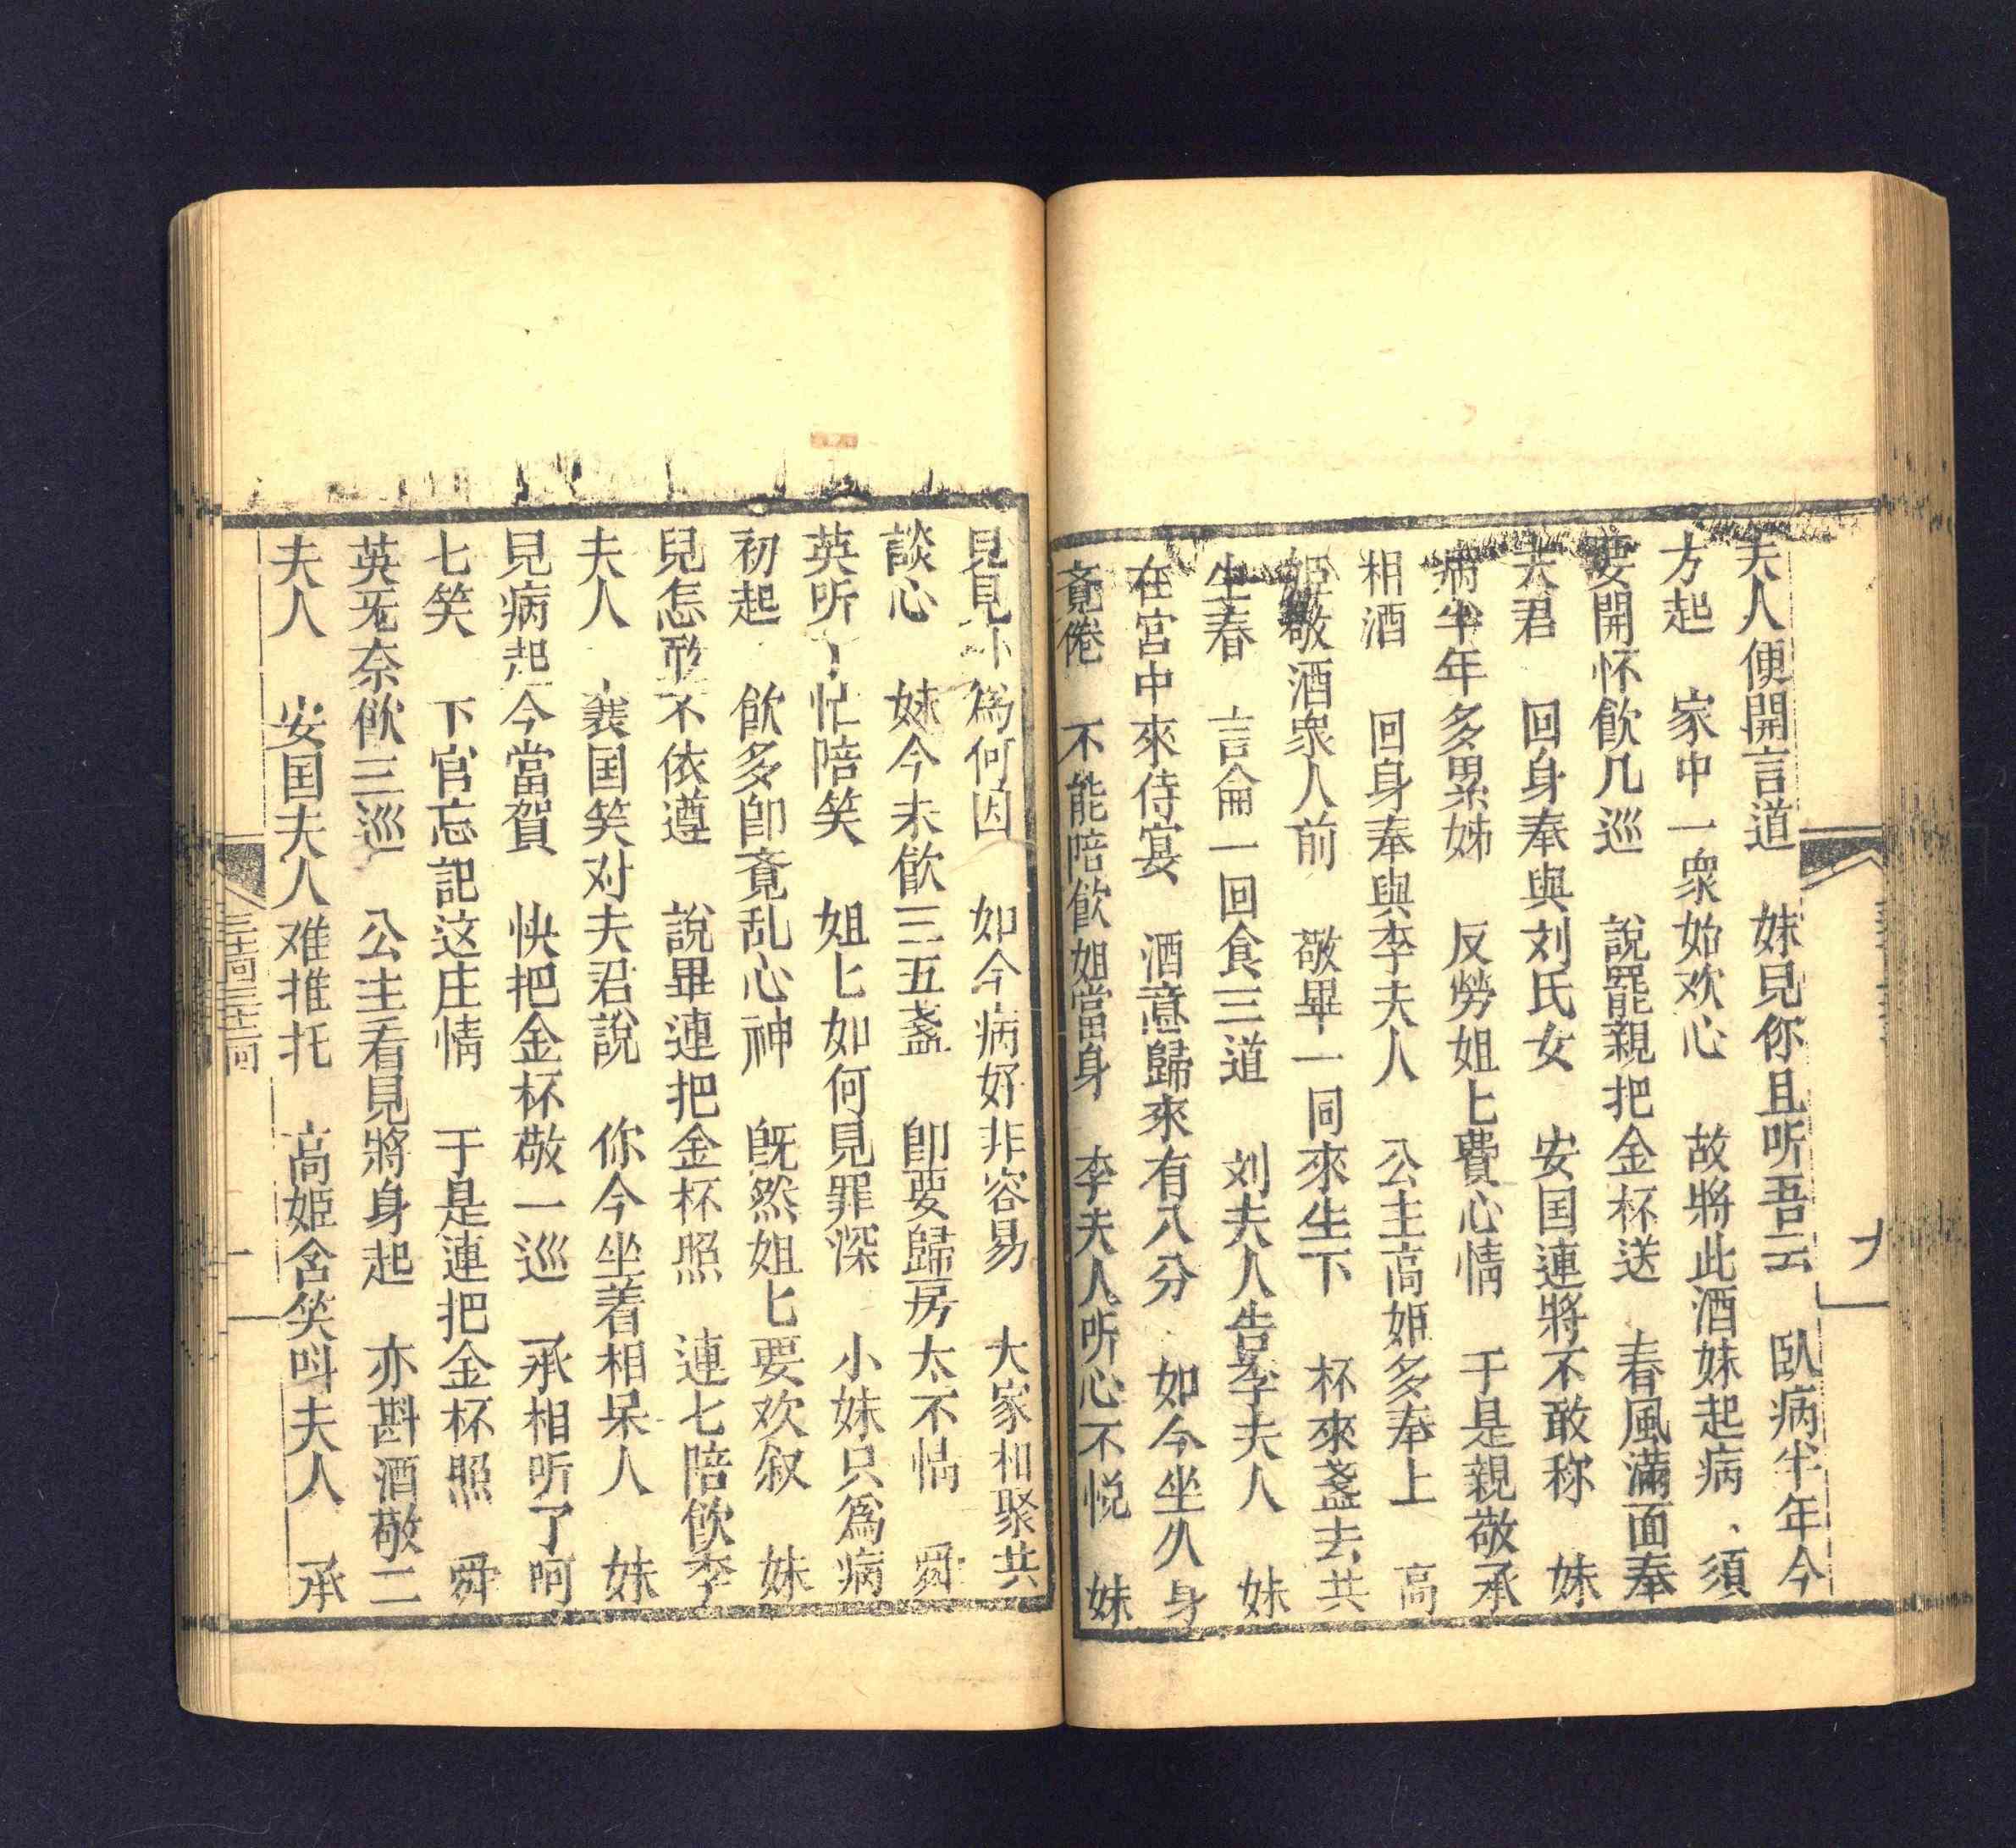 夫人便開言道　妹見你且听吾云　臥病半年今
方起　家中一衆始欢心　故將此酒妹起病　須
要開怀飲几巡　說罷親把金杯送　春風滿面奉
夫君　回身奉與刘氏女　安国連將不敢称　妹
病半年多累姊　反勞姐匕費心情　于是親敬承
相酒　回身奉與李夫人　公主高姬多奉上　高
姬敬酒衆人前　敬畢一同來生下　杯來盞去共
生春　言侖一回食三道　刘夫人告李夫人　妹
在宫中來侍宴　酒意歸來有八分　如今坐久身
竟倦　不能陪飲姐當身　李夫人听心不悅　妹
見見小爲何因　如今病好非容易　大家相聚共
談心　妹今未飲三五盞　卽要歸房太不情　舜
英听了忙陪笑　姐匕如何見罪深　小妹只爲病
初起　飲多卽竟乱心神　旣然姐匕要欢叙　妹
兒怎敢不依遵　說畢連把金杯照　連七陪飲李
夫人　襄国笑对夫君說　你今坐着相呆人　妹
見病起今當賀　快把金杯敬一巡　承相听了呵
七笑　下官忘記这庄情　于是連把金杯照　舜
英旡奈飲三巡　公主看見將身起　亦斟酒敬二
夫人　安国夫人难推托　高姬含笑叫夫人　承
三十回三十一回